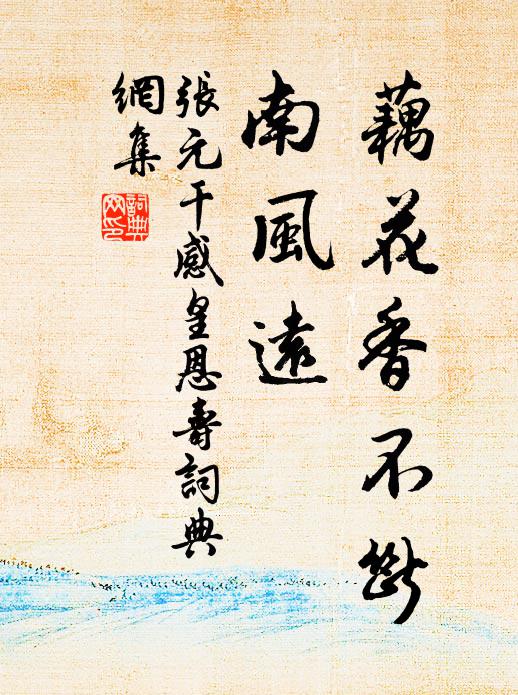 藕花香不斷
南風遠
張元干感皇恩壽詞典
網集
詞典
網印